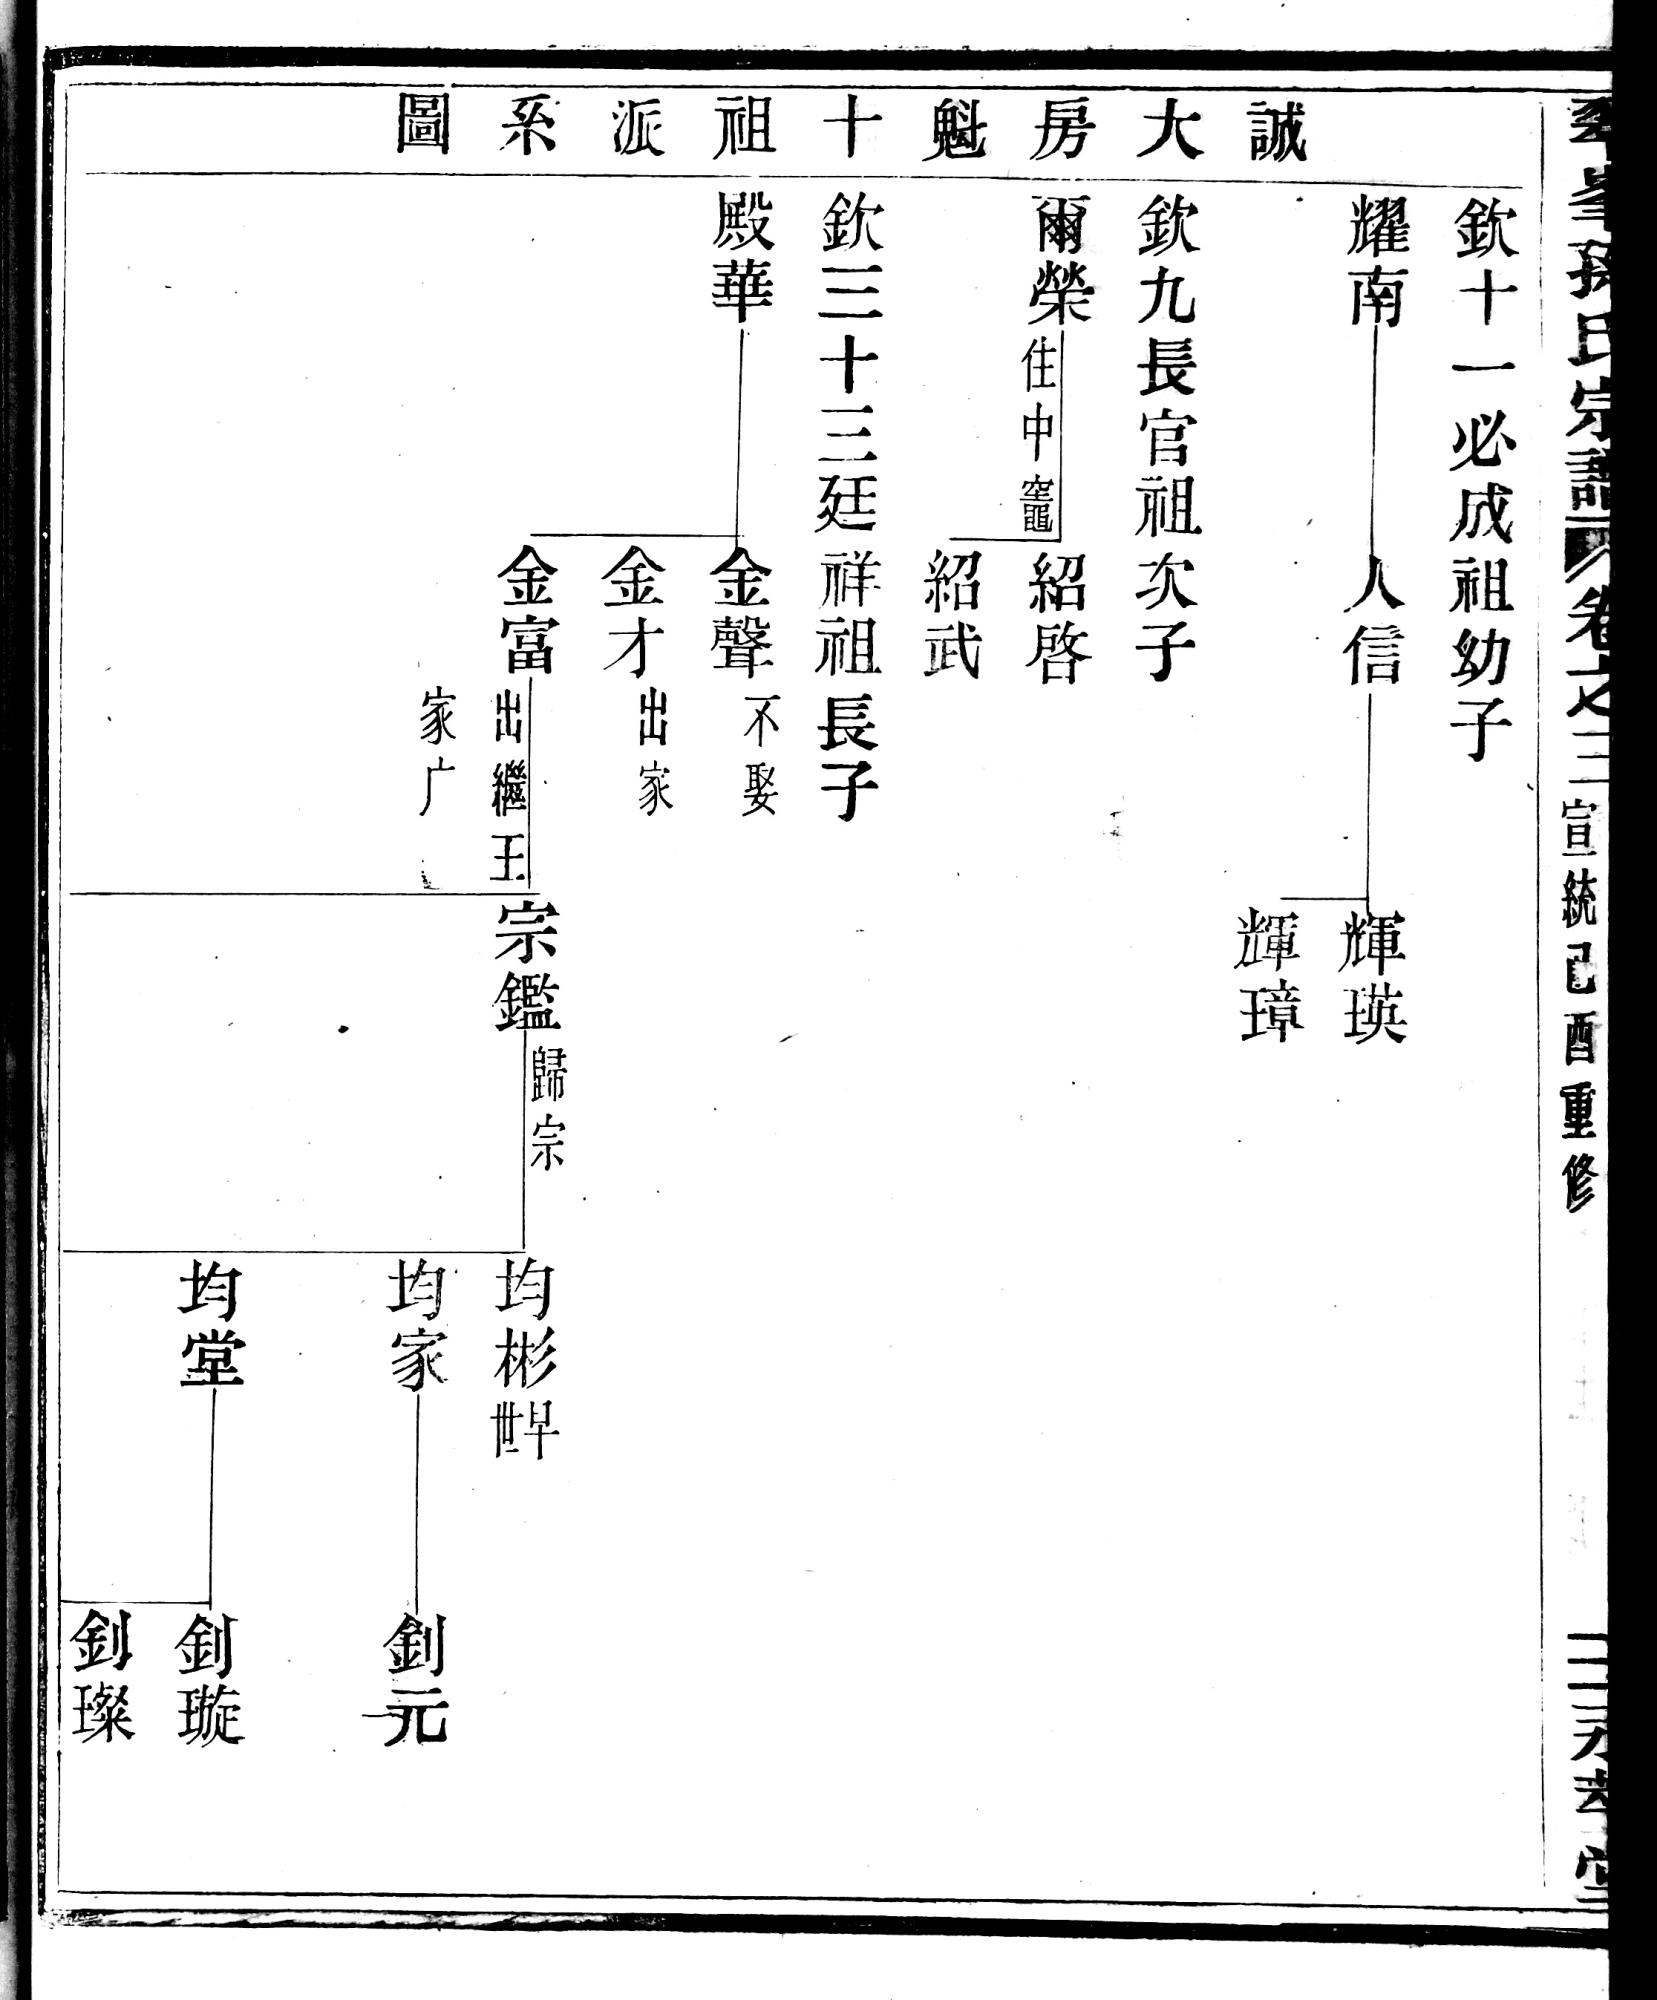 孫氏宗譜
卷之三
宣統己酉重修
誠大房魁十祖派系圖
欽十一必成祖幼子
耀南
人信
輝瑛
輝璋
欽九長官祖次子
爾榮
住中窰
紹啓
紹武
欽三十三廷祥祖長子
殿華
金聲
不娶
金才
出家
金富
出繼王
家广
宗鑑
歸宗
均彬
早世
均家
釗元
均堂
釗璇
釗璨